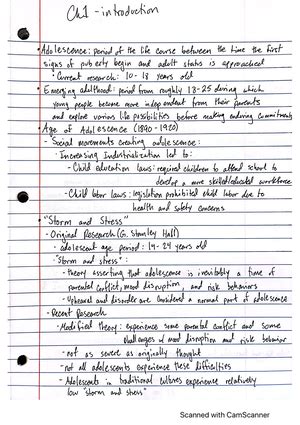 Ch1 - introduction
• Adolescence: period of the life course between the time the first
signs of puberty begin and adult status is approached
• Current research: 10-18 years old
• Emerging adulthood: period from roughly 18-25 during which
young people become more independent from their parents
and explore various life possibilities before making enduring commitments
• Age of Adolescence (1890-1920)
- Social movements creating adolescence:
- Increasing Industrialization led to:
- Child education laws: required children to attend school to
develop a more skilled/educated workforce
- Child labor laws: legislation prohibited child labor due to
health and safety concerns
• "Storm and Stress"
- Original Research (G. Stanley Hall)
- adolescent age period: 14-24 years old
- "Storm and stress":
- theory asserting that adolescence is inevitably a time of
parental conflict, mood disruption, and risk behaviors
- Upheaval and disorder are considered a normal part of adolescence
- Recent Research
- Modified theory: experience some parental conflict and some
challenges w/ mood disruption and risk behavior
- not as severe as originally thought
- not all adolescents experience these difficulties
- Adolescents in traditional cultures experience relatively
low "storm and stress"
Scanned with CamScanner